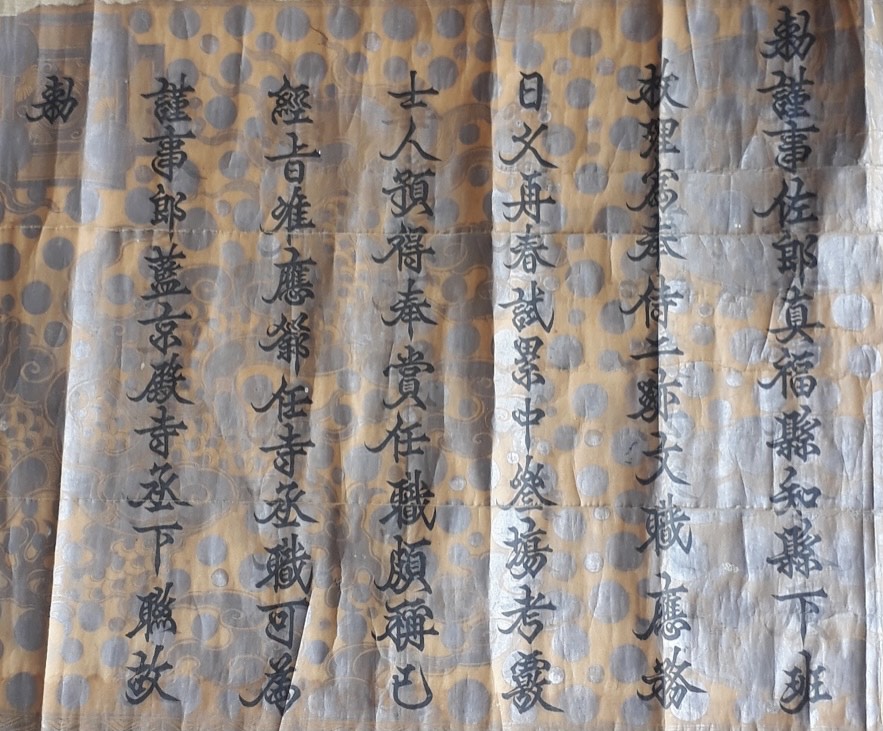 勅謹事佐郎真福縣知縣下班
理奉侍文職應務
日久再春試累中叁場考覈
士人頴得奉賞任職頗稱已
經旨准應任寺丞職可為
謹事郎藍京殿寺丞下聯故
勅